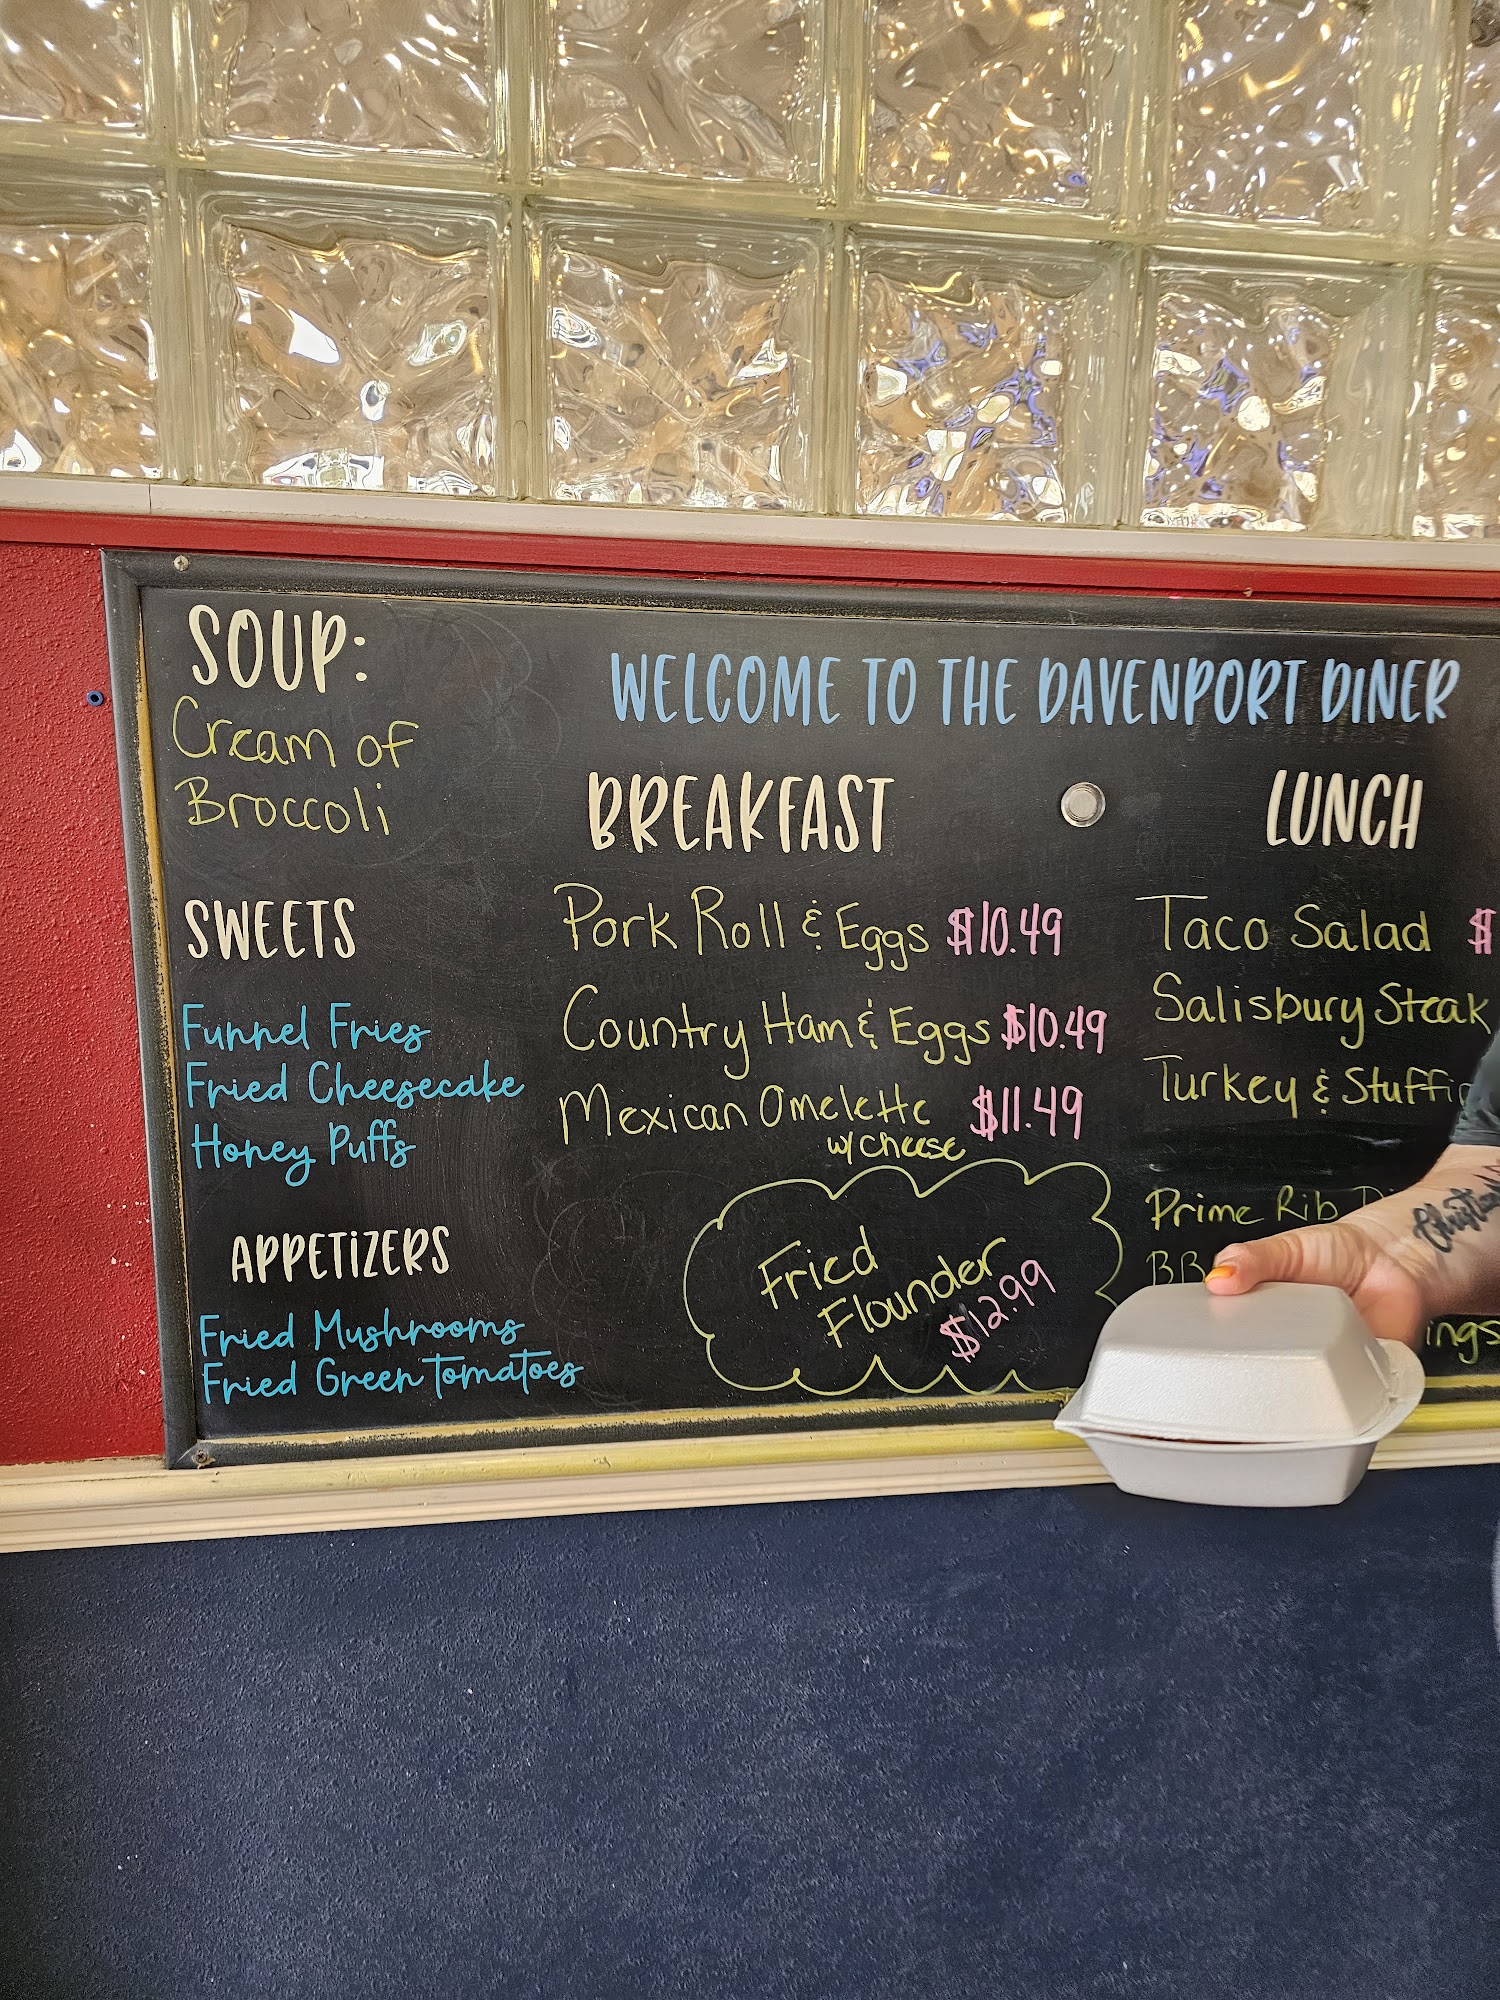 SOUP:
Cream of
Broccoli
SWEETS
Funnel Fries
Fried Cheesecake
Honey Puffs
APPETIZERS
Fried Mushrooms
Fried Green Tomatoes
WELCOME TO THE DAVENPORT DINER
BREAKFAST
Pork Roll & Eggs $10.49
Country Ham & Eggs $10.49
Mexican Omelette $11.49
w/ cheese
Fried
Flounder
$12.99
LUNCH
Taco Salad $
Salisbury Steak
Turkey &
Prime Rib